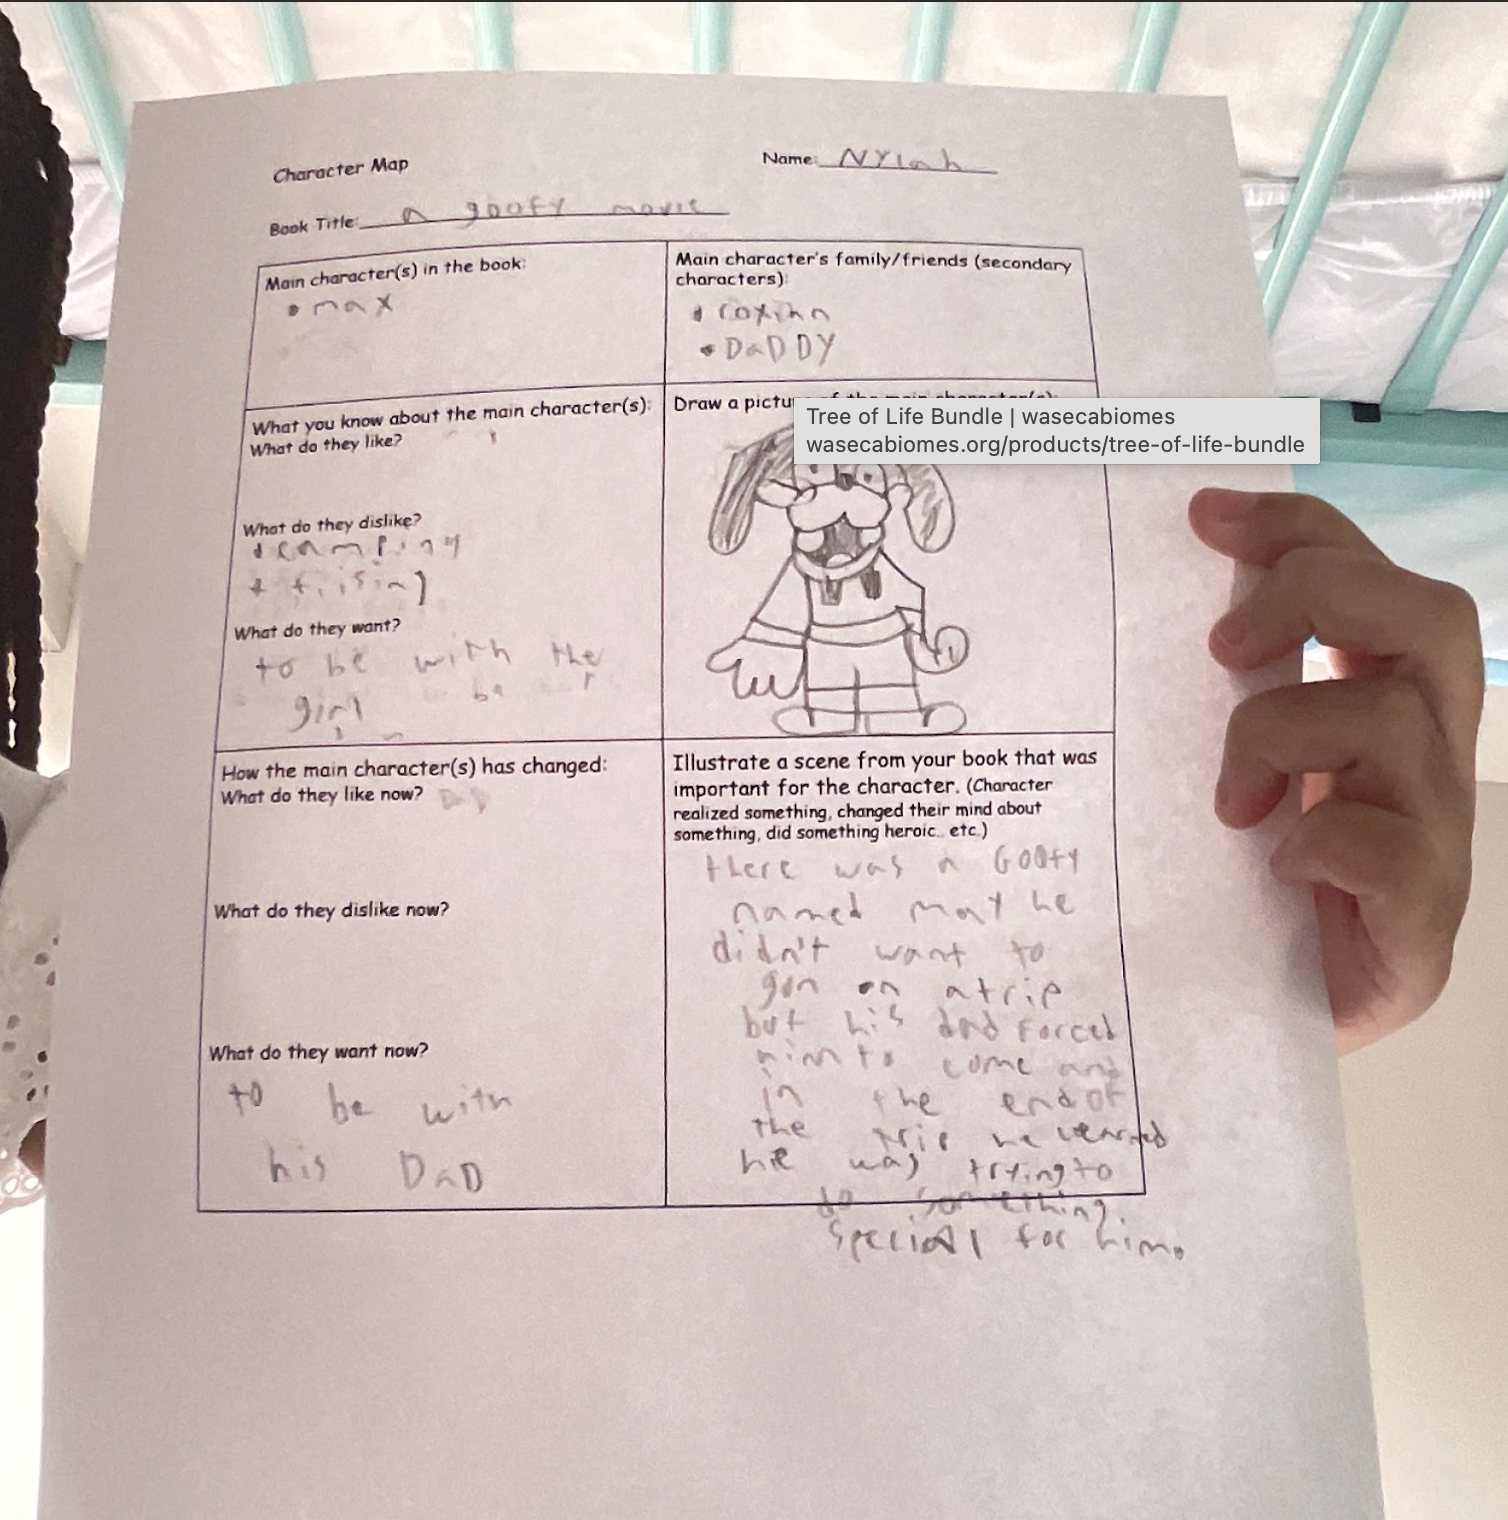 Character Map
Name: NYlah
Book Title: a goofy movie
Main character(s) in the book:
• max
Main character's family/friends (secondary
characters):
• roxinn
• DaDDY
What you know about the main character(s):
What do they like?
What do they dislike?
camping
What do they want?
to be with the
girl
Draw a pictu
Tree of Life Bundle | wasecabiomes
wasecabiomes.org/products/tree-of-life-bundle
How the main character(s) has changed:
What do they like now?
What do they dislike now?
What do they want now?
to be with
his DaD
Illustrate a scene from your book that was
important for the character. (Character
realized something, changed their mind about
something, did something heroic.. etc.)
there was a Goofy
named max he
didn't want to
on a trip
but his dad Forced
him to come and
in the end of
the trip he learned
he was trying to
do something
special for him.